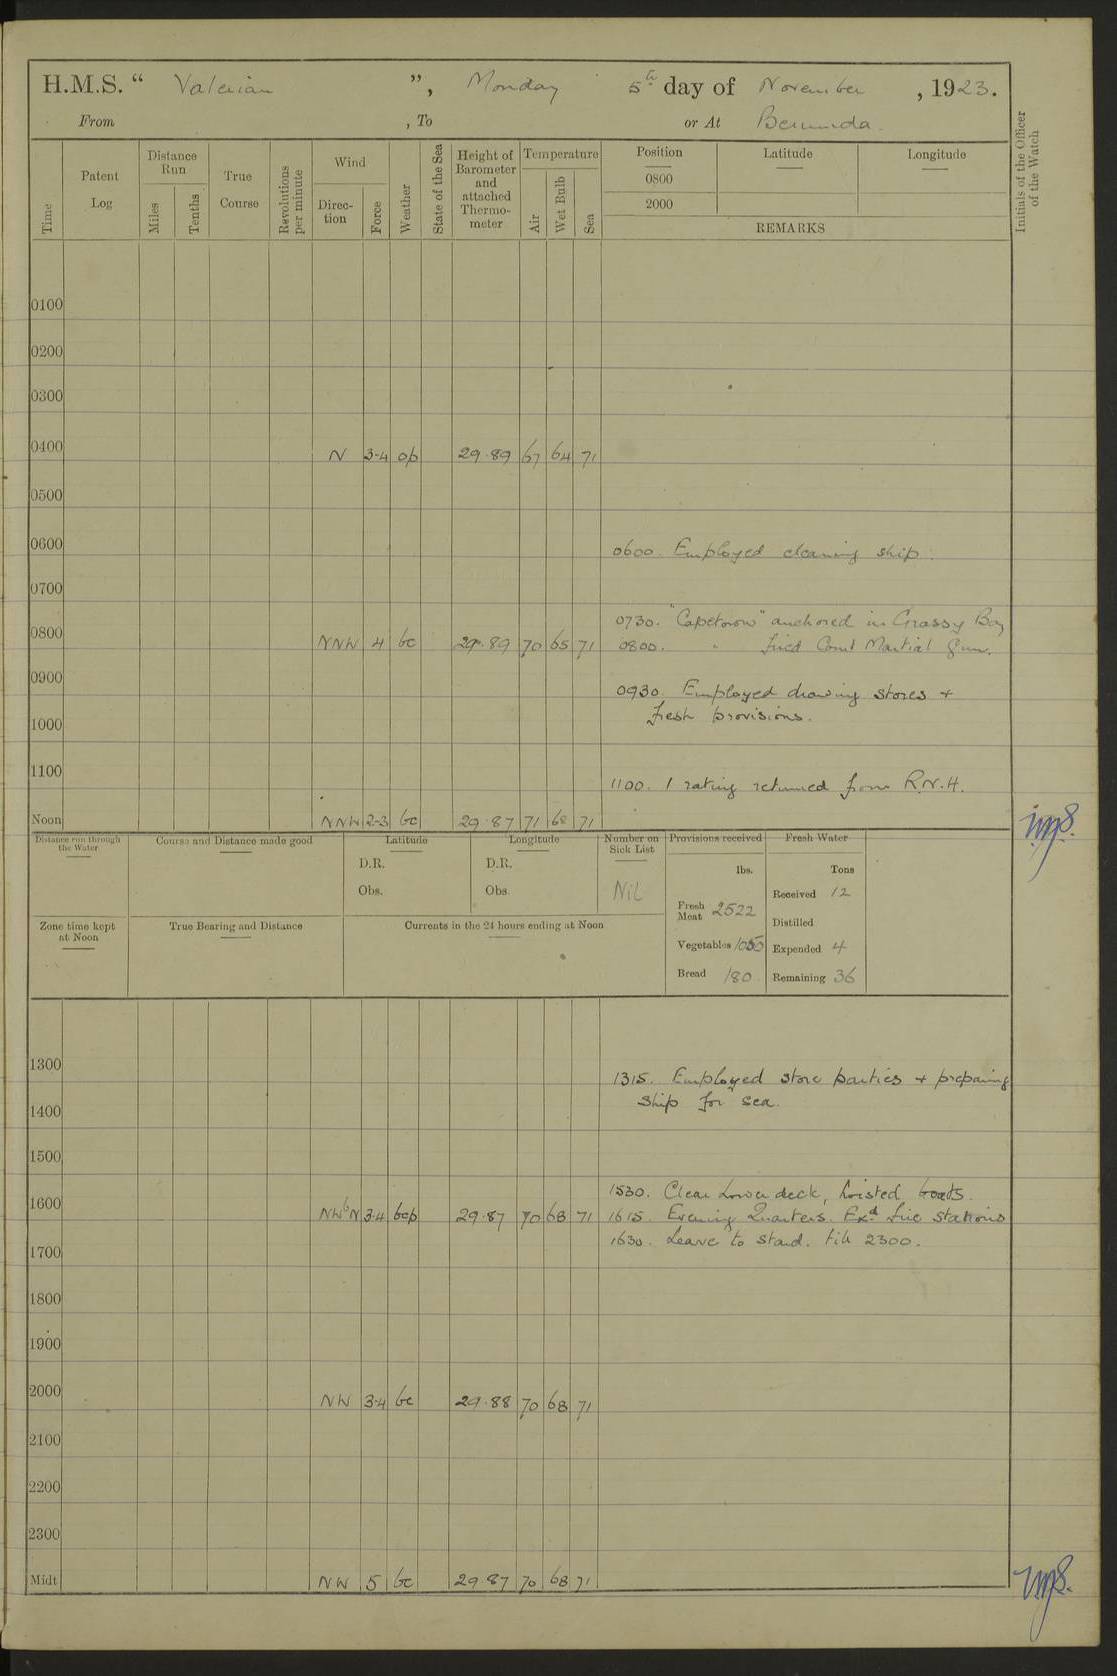 H.M.S. “ Valerian ”, Monday 5th day of November, 1923.
From , To or At Bermuda.
Time
Patent Log
Distance Run
Miles
Tenths
True Course
Revolutions per minute
Wind
Direction
Force
Weather
State of the Sea
Height of Barometer and attached Thermometer
Temperature
Air
Wet Bulb
Sea
Position
0800
2000
Latitude
Longitude
REMARKS
Initials of the Officer of the Watch
0100
0200
0300
0400 N 3-4 op 29.89 67 64 71
0500
0600
0600. Employed cleaning ship.
0700
0730. "Capetown" anchored in Grassy Bay
0800 NNW 4 bc 29.89 70 65 71 0800. " fired Court Martial Gun.
0900
0930. Employed drawing stores +
fresh provisions.
1000
1100
1100. 1 rating returned from R.N.H.
Noon NNW 2-3 bc 29.87 71 68 71
Distance run through the Water
Course and Distance made good
Latitude
D.R.
Obs.
Longitude
D.R.
Obs.
Number on Sick List
Nil
Provisions received
lbs.
Fresh Meat 2522
Vegetables 1050
Bread 180
Fresh Water
Tons
Received 12
Distilled
Expended 4
Remaining 36
Zone time kept at Noon
True Bearing and Distance
Currents in the 24 hours ending at Noon
1300
1315. Employed store parties + preparing
ship for sea.
1400
1500
1530. Clear Lower deck, hoisted boats.
1600 NWbN 3-4 bcp 29.87 70 68 71 1615. Evening Quarters. Exd. fire stations
1630. Leave to Starb. till 2300.
1700
1800
1900
2000 NW 3-4 bc 29.88 70 68 71
2100
2200
2300
Midt NW 5 bc 29.87 70 68 71